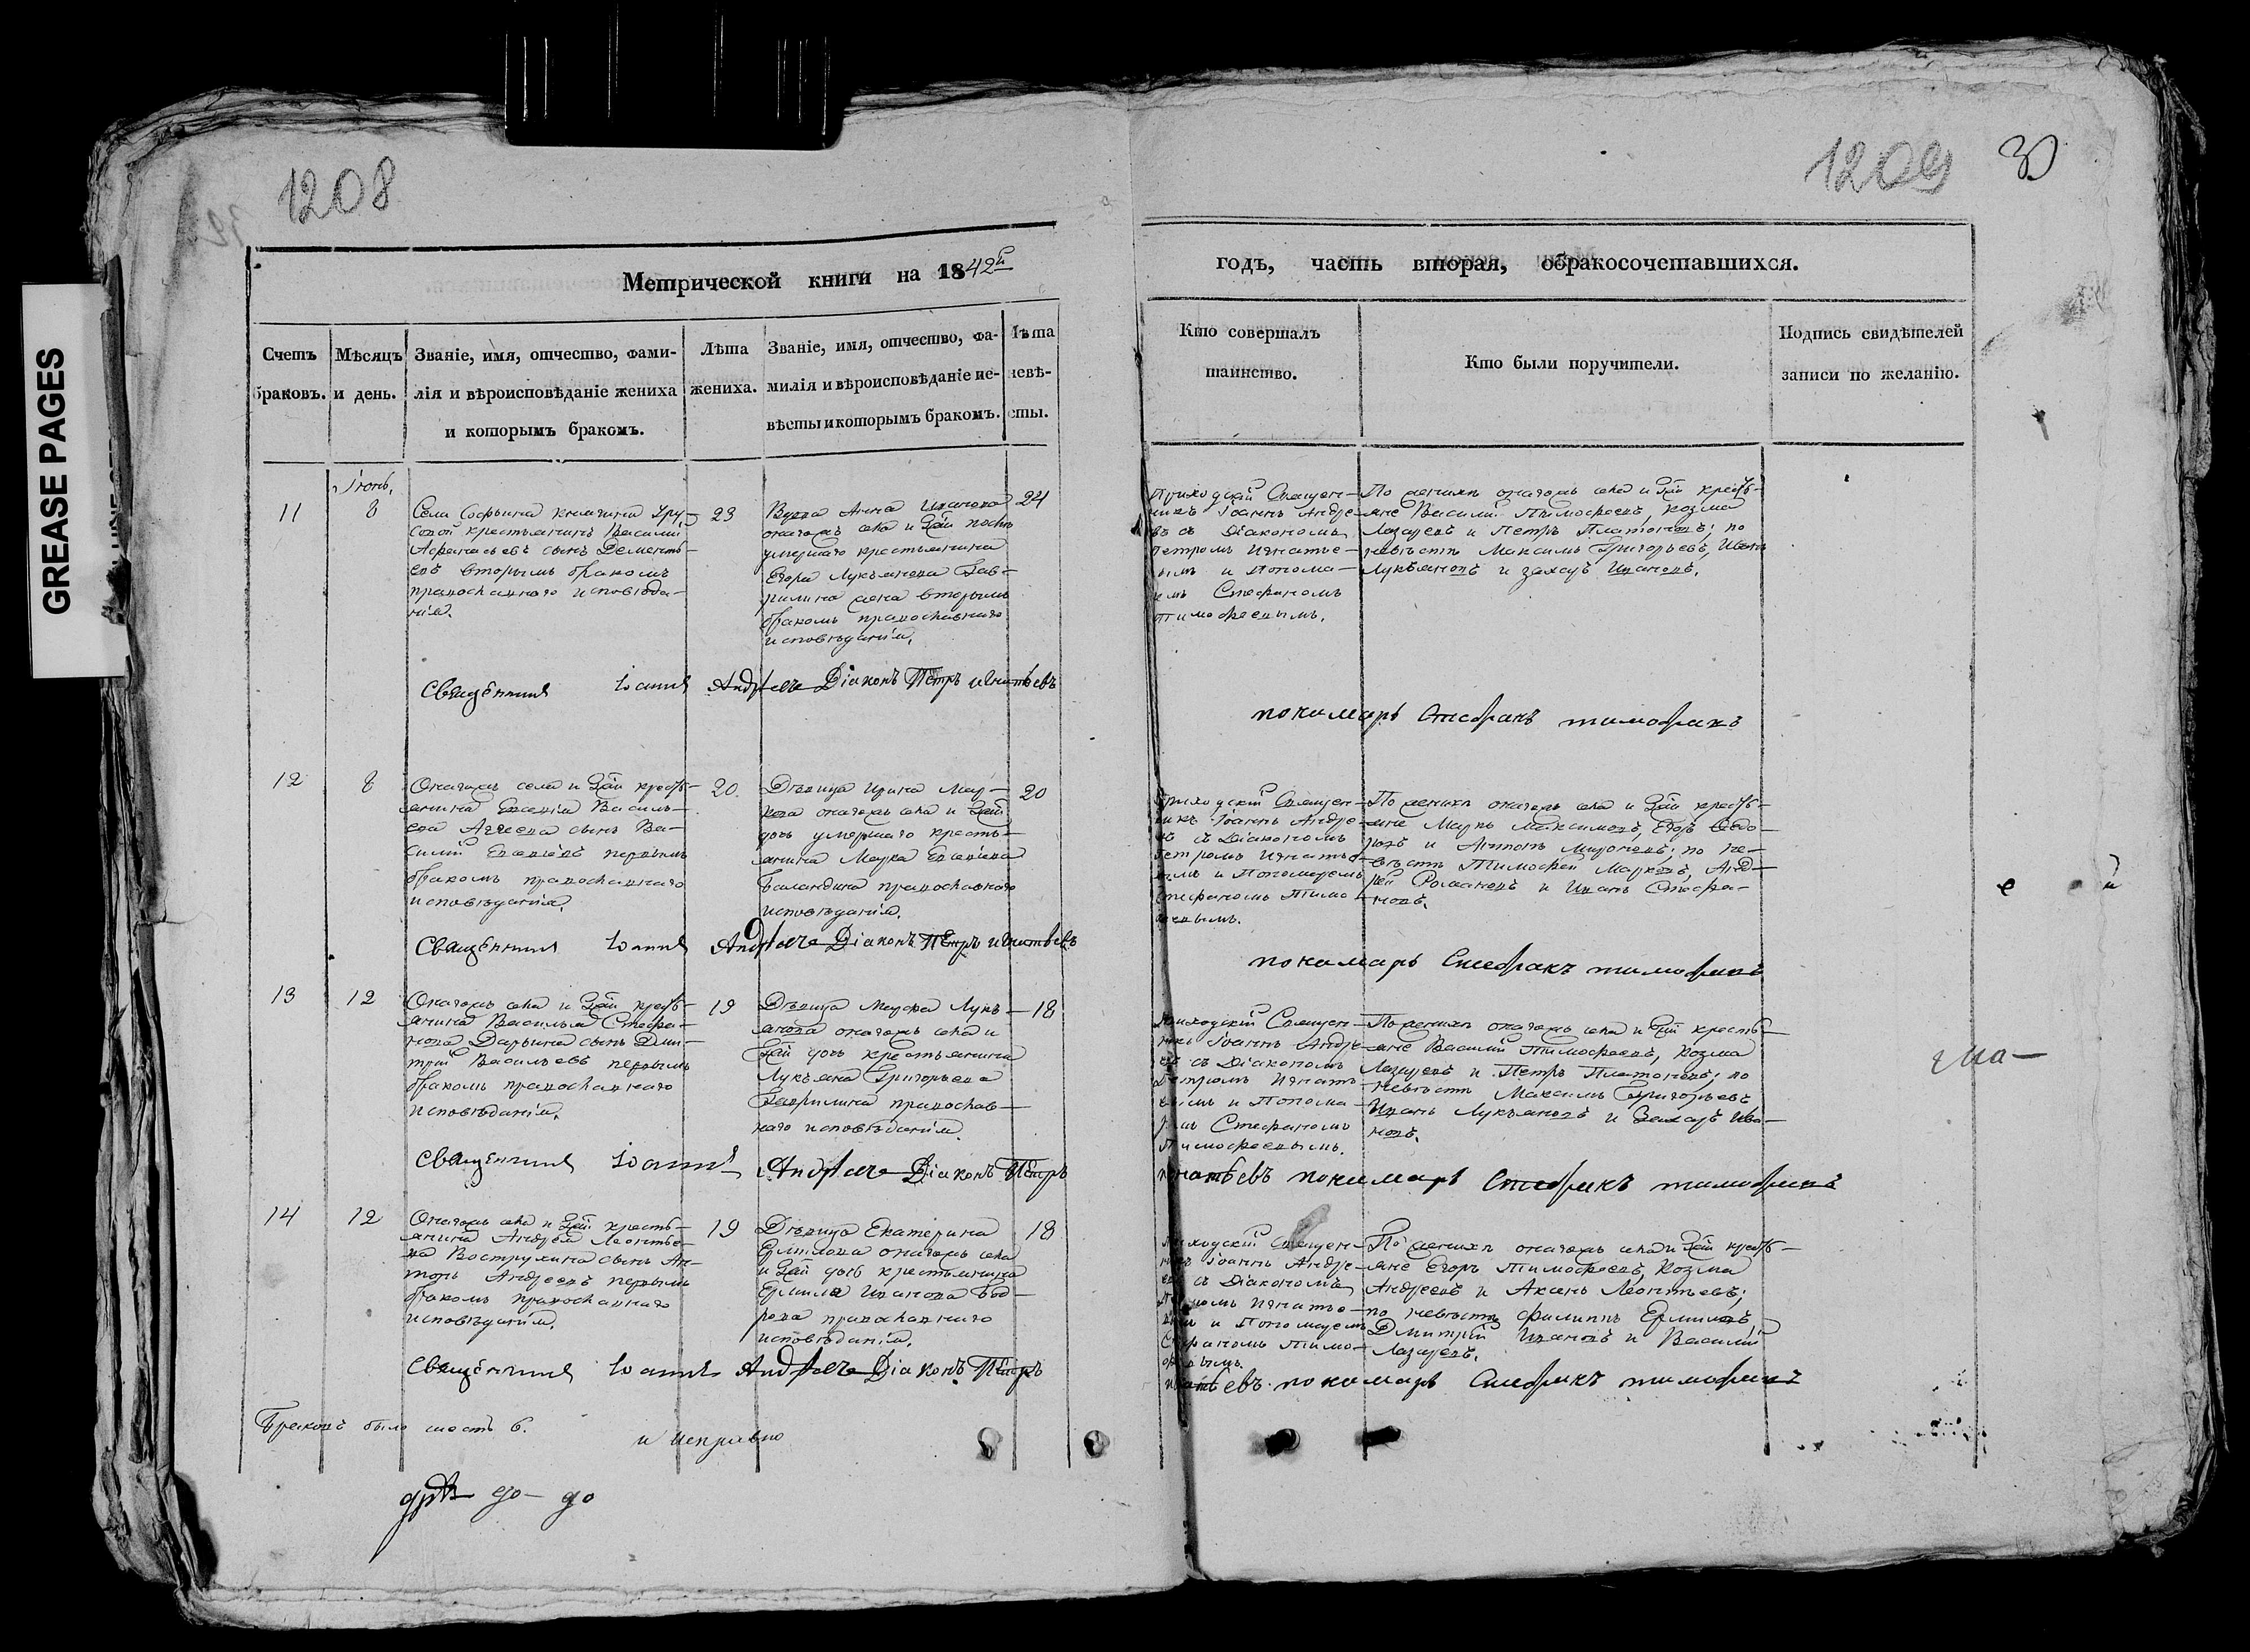 GREASE PAGES
1208
Метрической книги на 1842й
Счетъ браковъ.
Мѣсяцъ и день.
Званіе, имя, отчество, фами-
лія и вѣроисповѣданіе жениха
и которымъ бракомъ.
Лѣта
жениха.
Званіе, имя, отчество, фа-
милія и вѣроисповѣданіе не-
вѣсты и которымъ бракомъ.
Лѣта
невѣ-
сты.
Іюнь,
11
8
Села Софьина княгини Тру-
совой крестьянинъ Василій
Афанасьевъ сынъ Дементь-
евъ вторымъ бракомъ
православнаго исповѣда-
нія.
23
Вдова Анна Иванова
онагожъ села и Гжи послѣ
умершаго крестьянина
Егора Лукьянова Гав-
рилина жена вторымъ
бракомъ православнаго
исповѣданія.
24
Священникъ Іоаннъ Андреевъ Діаконъ Петръ Игнатьевъ
12
8
Онагожъ села и Гжи кресть-
янина Евсевія Василь-
ева Агеева сынъ Ва-
силій Евсевіевъ первымъ
бракомъ православнаго
исповѣданія.
20.
Дѣвица Ирина Мар-
кова онагожъ села и Гжи
дочь умершаго кресть-
янина Марка Евсевіева
Баландина православнаго
исповѣданія.
20
Священникъ Іоаннъ Андреевъ Діаконъ Петръ Игнатьевъ
13
12
Онагожъ села и Гжи кресть-
янина Василья Стефа-
нова Дарьина сынъ Дми-
трій Васильевъ первымъ
бракомъ православнаго
исповѣданія.
19
Дѣвица Марфа Лукь-
янова онагожъ села и
Гжи дочь крестьянина
Лукьяна Григорьева
Гаврилина православ-
наго исповѣданія.
18
Священникъ Іоаннъ Андреевъ Діаконъ Петръ
14
12
Онагожъ села и Гжи кресть-
янина Андрея Леонтье-
ва Вострухина сынъ Ан-
тонъ Андреевъ первымъ
бракомъ православнаго
исповѣданія.
19
Дѣвица Екатерина
Ермилова онагожъ села
и Гжи дочь крестьянина
Ермила Иванова Бод-
рова православнаго
исповѣданія.
18
Священникъ Іоаннъ Андреевъ Діаконъ Петръ
Браковъ было шесть 6.
и исправно
1209
30
годъ, часть вторая, о бракосочетавшихся.
Кто совершалъ
таинство.
Кто были поручители.
Подпись свидѣтелей
записи по желанію.
Приходскій Священ-
никъ Іоаннъ Андре-
евъ съ Діакономъ
Петромъ Игнатье-
вымъ и Понома-
ремъ Стефаномъ
Тимофеевымъ.
По женихѣ онагожъ села и Гжи кресть-
яне Василій Тимофеевъ, Козма
Лазаревъ и Петръ Платоновъ; по
невѣстѣ Максимъ Григорьевъ, Иванъ
Лукьяновъ и Захаръ Ивановъ.
пономарь Стефанъ тимофеевъ
Приходскій Священ-
никъ Іоаннъ Андре-
евъ съ Діакономъ
Петромъ Игнатье-
вымъ и Пономаремъ
Стефаномъ Тимо-
феевымъ.
По женихѣ онагожъ села и Гжи кресть-
яне Маркъ Максимовъ, Егоръ Федо-
ровъ и Антонъ Мироновъ; по не-
вѣстѣ Тимофей Марковъ, Анд-
рей Романовъ и Иванъ Стефа-
новъ.
пономарь Стефанъ тимофеевъ
Приходскій Священ-
никъ Іоаннъ Андре-
евъ съ Діакономъ
Петромъ Игнать-
евымъ и Понома-
ремъ Стефаномъ
Тимофеевымъ.
По женихѣ онагожъ села и Гжи кресть-
яне Василій Тимофеевъ, Козма
Лазаревъ и Петръ Платоновъ; по
невѣстѣ Максимъ Григорьевъ
Иванъ Лукьяновъ и Захаръ Ива-
новъ.
игнатьевъ пономарь Стефанъ тимофеевъ
Приходскій Священ-
никъ Іоаннъ Андре-
евъ съ Діакономъ
Петромъ Игнатье-
вымъ и Пономаремъ
Стефаномъ Тимо-
феевымъ.
По женихѣ онагожъ села и Гжи кресть-
яне Егоръ Тимофеевъ, Козма
Андреевъ и Аксенъ Леонтьевъ;
по невѣстѣ Филиппъ Ермиловъ,
Дмитрій Ивановъ и Василій
Лазаревъ.
игнатьевъ пономарь Стефанъ тимофеевъ